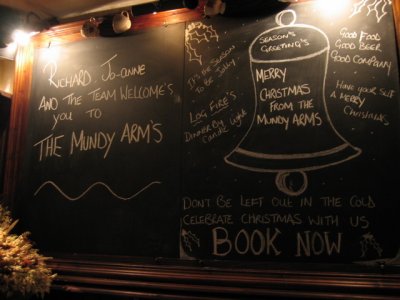 RICHARD. JO-ANNE
AND THE TEAM WELCOME'S
YOU TO
THE MUNDY ARM'S
IT'S THE SEASON
TO BE JOLLY
LOG FIRE'S
DINNER BY
CANDLE LIGHT
SEASON'S
GREETING'S
MERRY
CHRISTMAS
FROM THE
MUNDY ARMS
GOOD FOOD
GOOD BEER
GOOD COMPANY
HAVE YOUR SELF
A MERRY
CHRISTMAS
DON'T BE LEFT OUT IN THE COLD
CELEBRATE CHRISTMAS WITH US
BOOK NOW